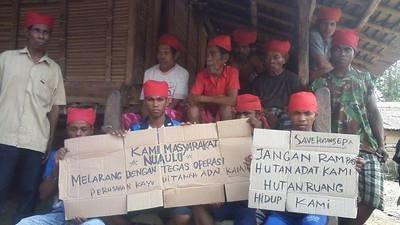 KAMI MASYARAKAT
NUAULU
MELARANG DENGAN TEGAS OPERASI
PERUSAHAN KAYU DI TANAH ADAT KAMI
SAVE
JANGAN RAMBAS
HUTAN ADAT KAMI
HUTAN RUANG
HIDUP KAMI